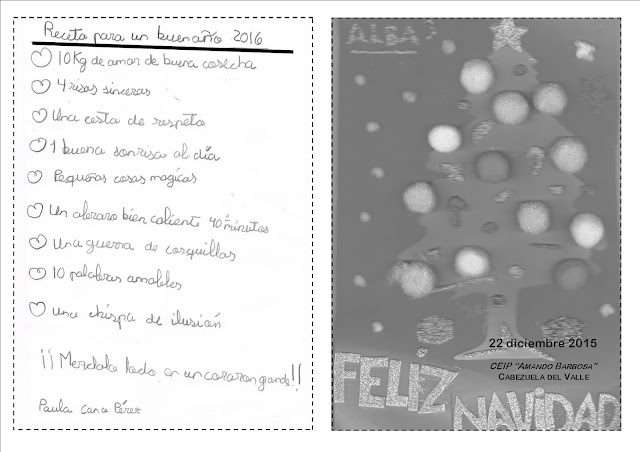 Receta para un buen año 2016
10Kg de amor de buena cosecha
4 risas sinceras
Una cesta de respeto
1 buena sonrisa al día
Pequeñas cosas magicas
Un abrazo bien caliente 40 minutos
Una guerra de cosquillas
10 palabras amables
una chispa de ilusión
¡¡Mezclalo todo en un corazon grande!!
Paula Cano Pérez
ALBA
22 diciembre 2015
CEIP "AMANDO BARBOSA"
CABEZUELA DEL VALLE
FELIZ
NAVIDAD